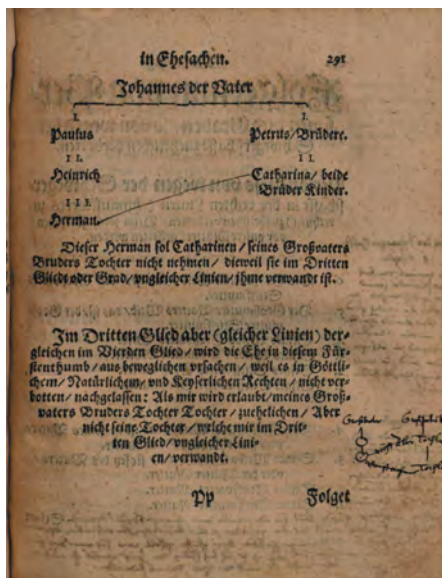 in Ehesachen. 291
Johannes der Vater
I. I.
Paulus Petrus/ Brüdere.
II. II.
Heinrich Catharina/ beide
Brüder Kinder.
III.
Herman.
Dieser Herman sol Catharinen/ seines Großvaters
Bruders Tochter nicht nehmen/ dieweil sie im Dritten
Gliedt oder Grad/ vngleicher Linien/ jhme verwandt ist.
Im Dritten Glied aber (gleicher Linien) der-
gleichen im Vierden Glied/ wird die Ehe in diesem Für-
stenthumb/ aus beweglichen vrsachen/ weil es in Göttli-
chem/ Natürlichem/ vnd Keyserlichen Rechten/ nicht ver-
botten/ nachgelassen: Als mir wird erlaubt/ meines Groß-
vaters Bruders Tochter Tochter/ zuehelichen/ Aber
nicht seine Tochter/ welche mir im Drit-
ten Glied/ vngleicher Lini-
en/ verwandt.
Pp Folget